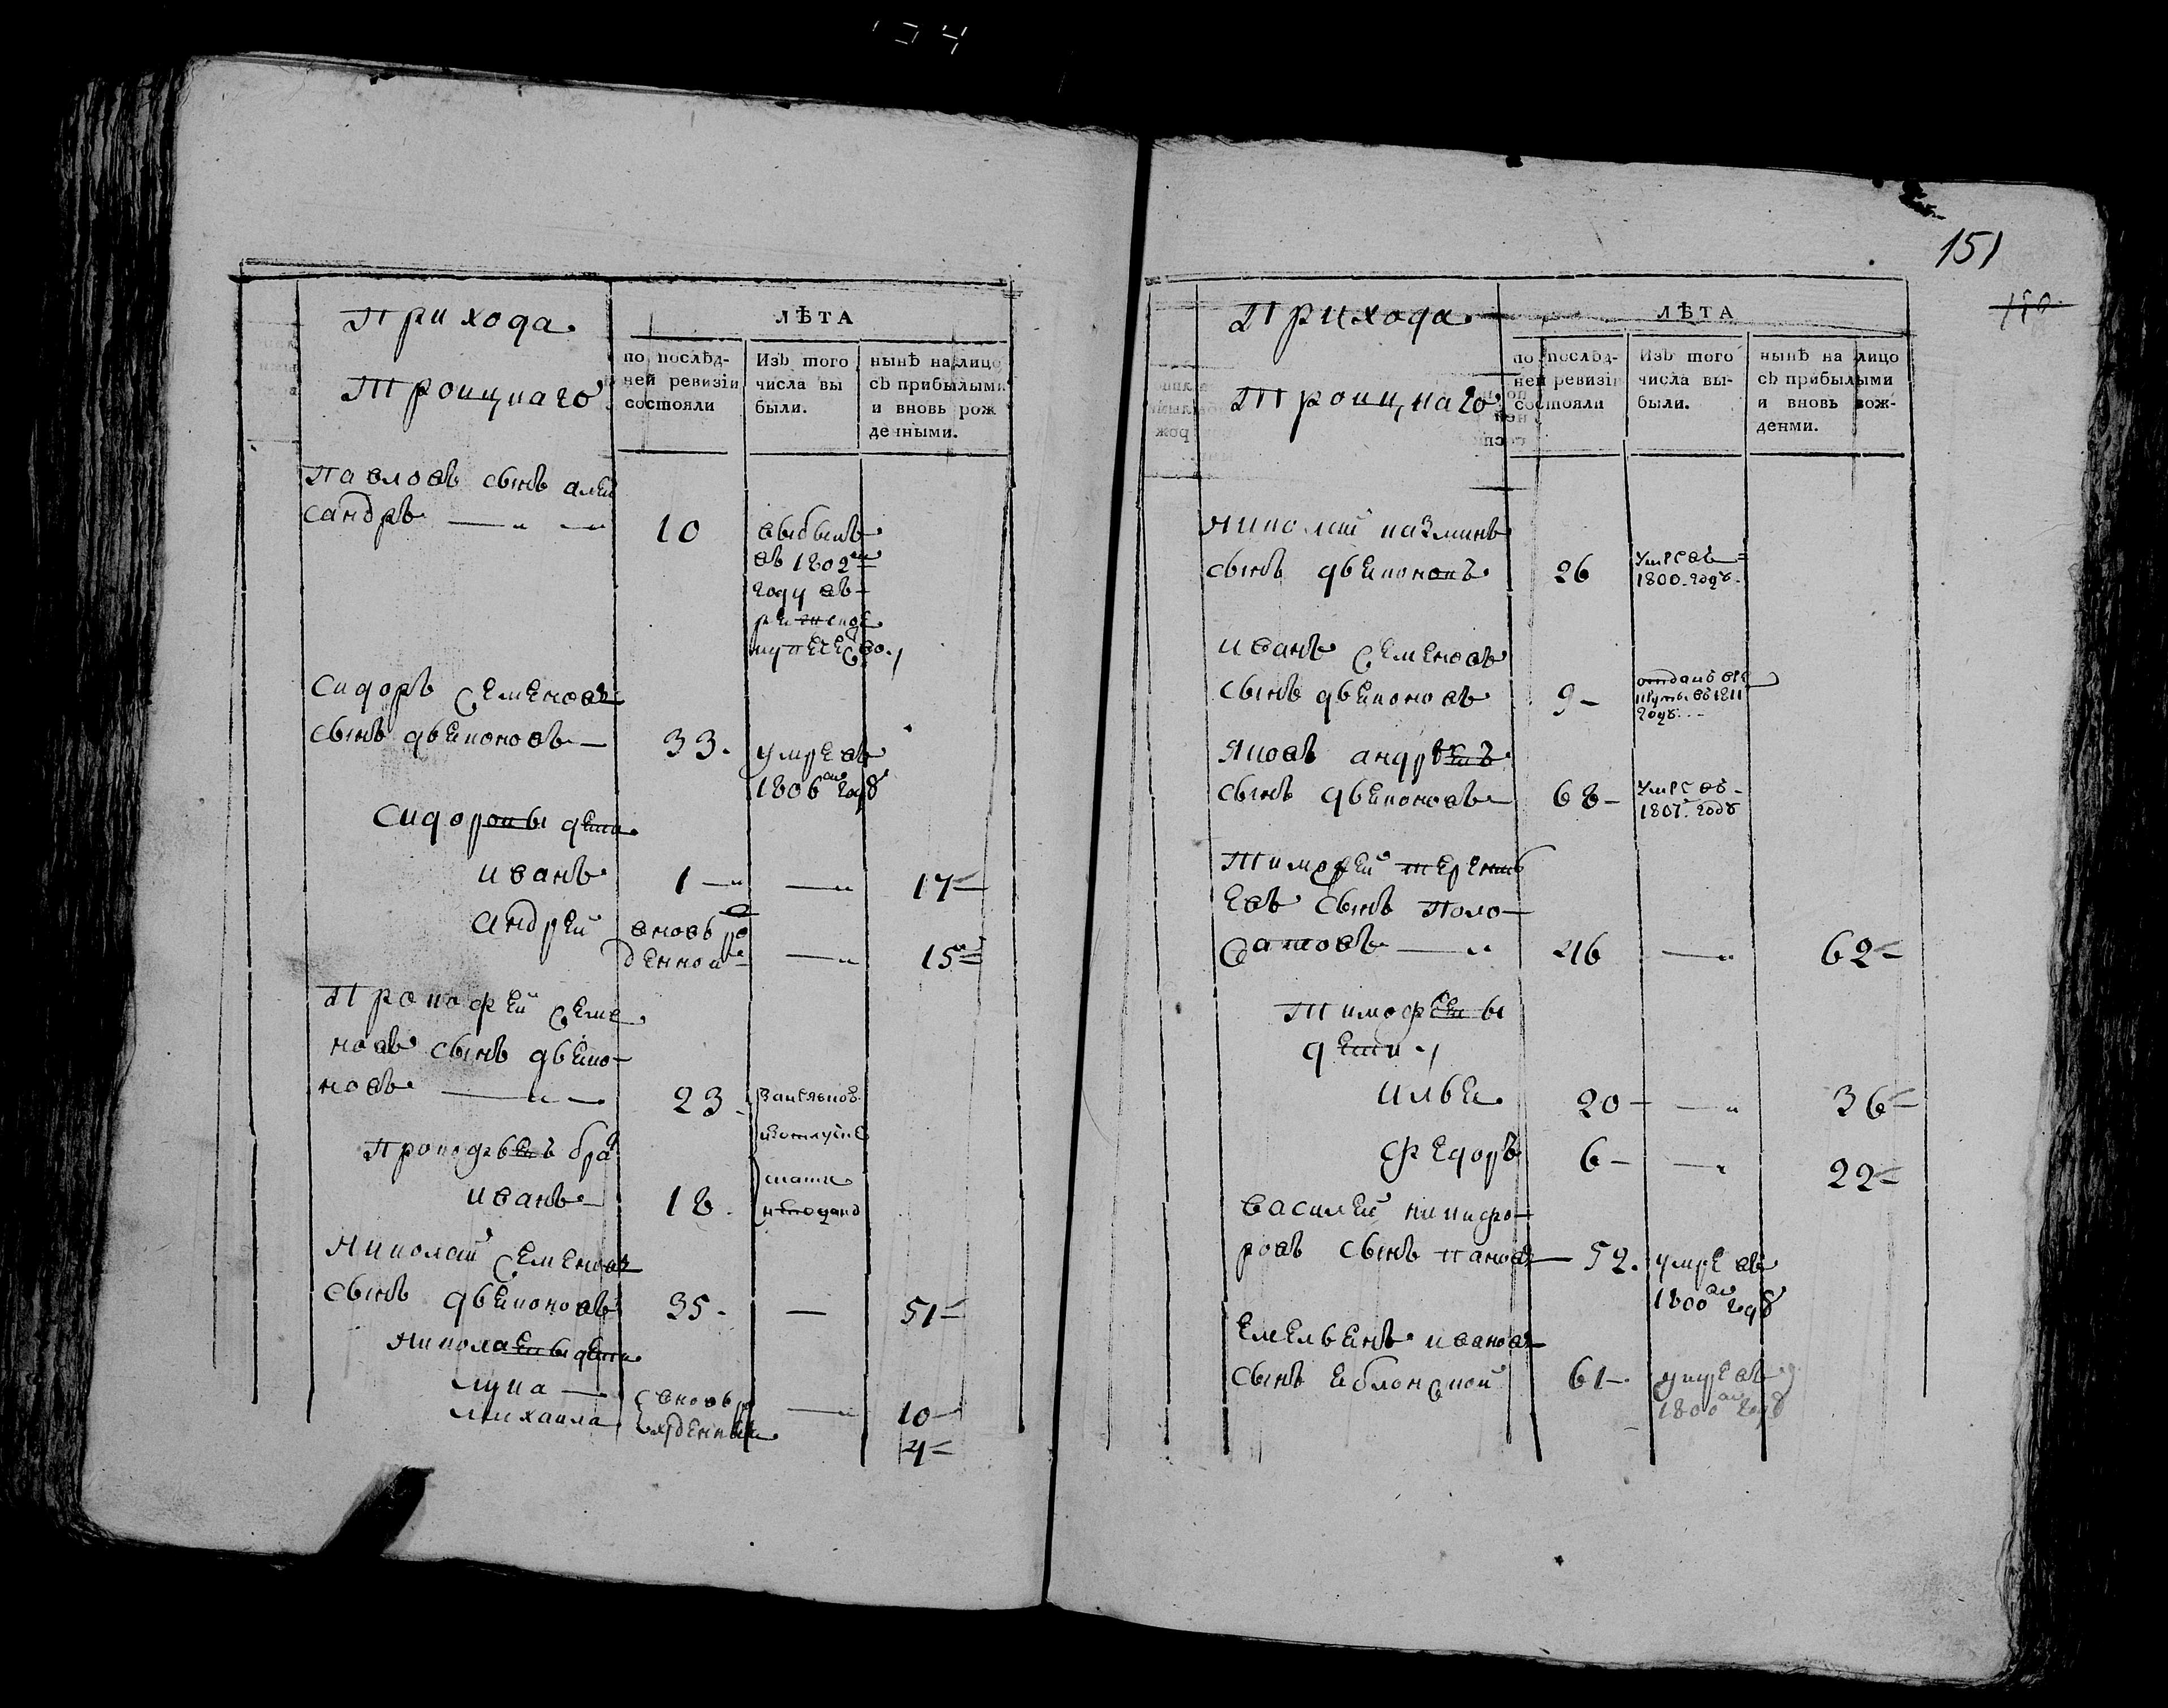 Прихода
Троицкаго
ЛѢТА
по послѣд-
ней ревизіи
состояли
Изъ того
числа вы
были.
нынѣ на лицо
съ прибылыми
и вновь рож
денными.
Павловъ сынъ алек
сандръ 10 выбылъ
въ 1802м
году въ
купечество
Сидоръ Семеновъ
сынъ дьяконовъ 33. умре въ
1806м году
Сидоровы дети
иванъ 1 17
андрей вновь ро
денной 15
Прокофей Семе
новъ сынъ дьяко-
новъ 23
Прокофьевъ бра
иванъ 18.
Николай Семеновъ
сынъ дьяконовъ 35 51
Николаевы дети
лука вновь ро
михаила жденныя 10
4
151
Прихода
Троицкаго
ЛѢТА
по послѣд-
ней ревизіи
состояли
Изъ того
числа вы-
были.
нынѣ на лицо
съ прибылыми
и вновь рож-
денми.
Николай казминъ
сынъ дьяконовъ 26 умре въ
1800 году
иванъ Семеновъ
сынъ дьяконовъ 9 отданъ в ре
круты въ 1811
году
Яковъ андреевъ
сынъ дьяконовъ 68 умре въ
1807 году
Тимофей терентьь
евъ сынъ Поло-
сатовъ 46 62
Тимофеевы
дети
илья 20 36
Федоръ 6 22
василей никифо-
ровъ сынъ пановъ 52. умре въ
1800м году
Емельянъ ивановъ
сынъ яблонской 61 умре въ
1800м году